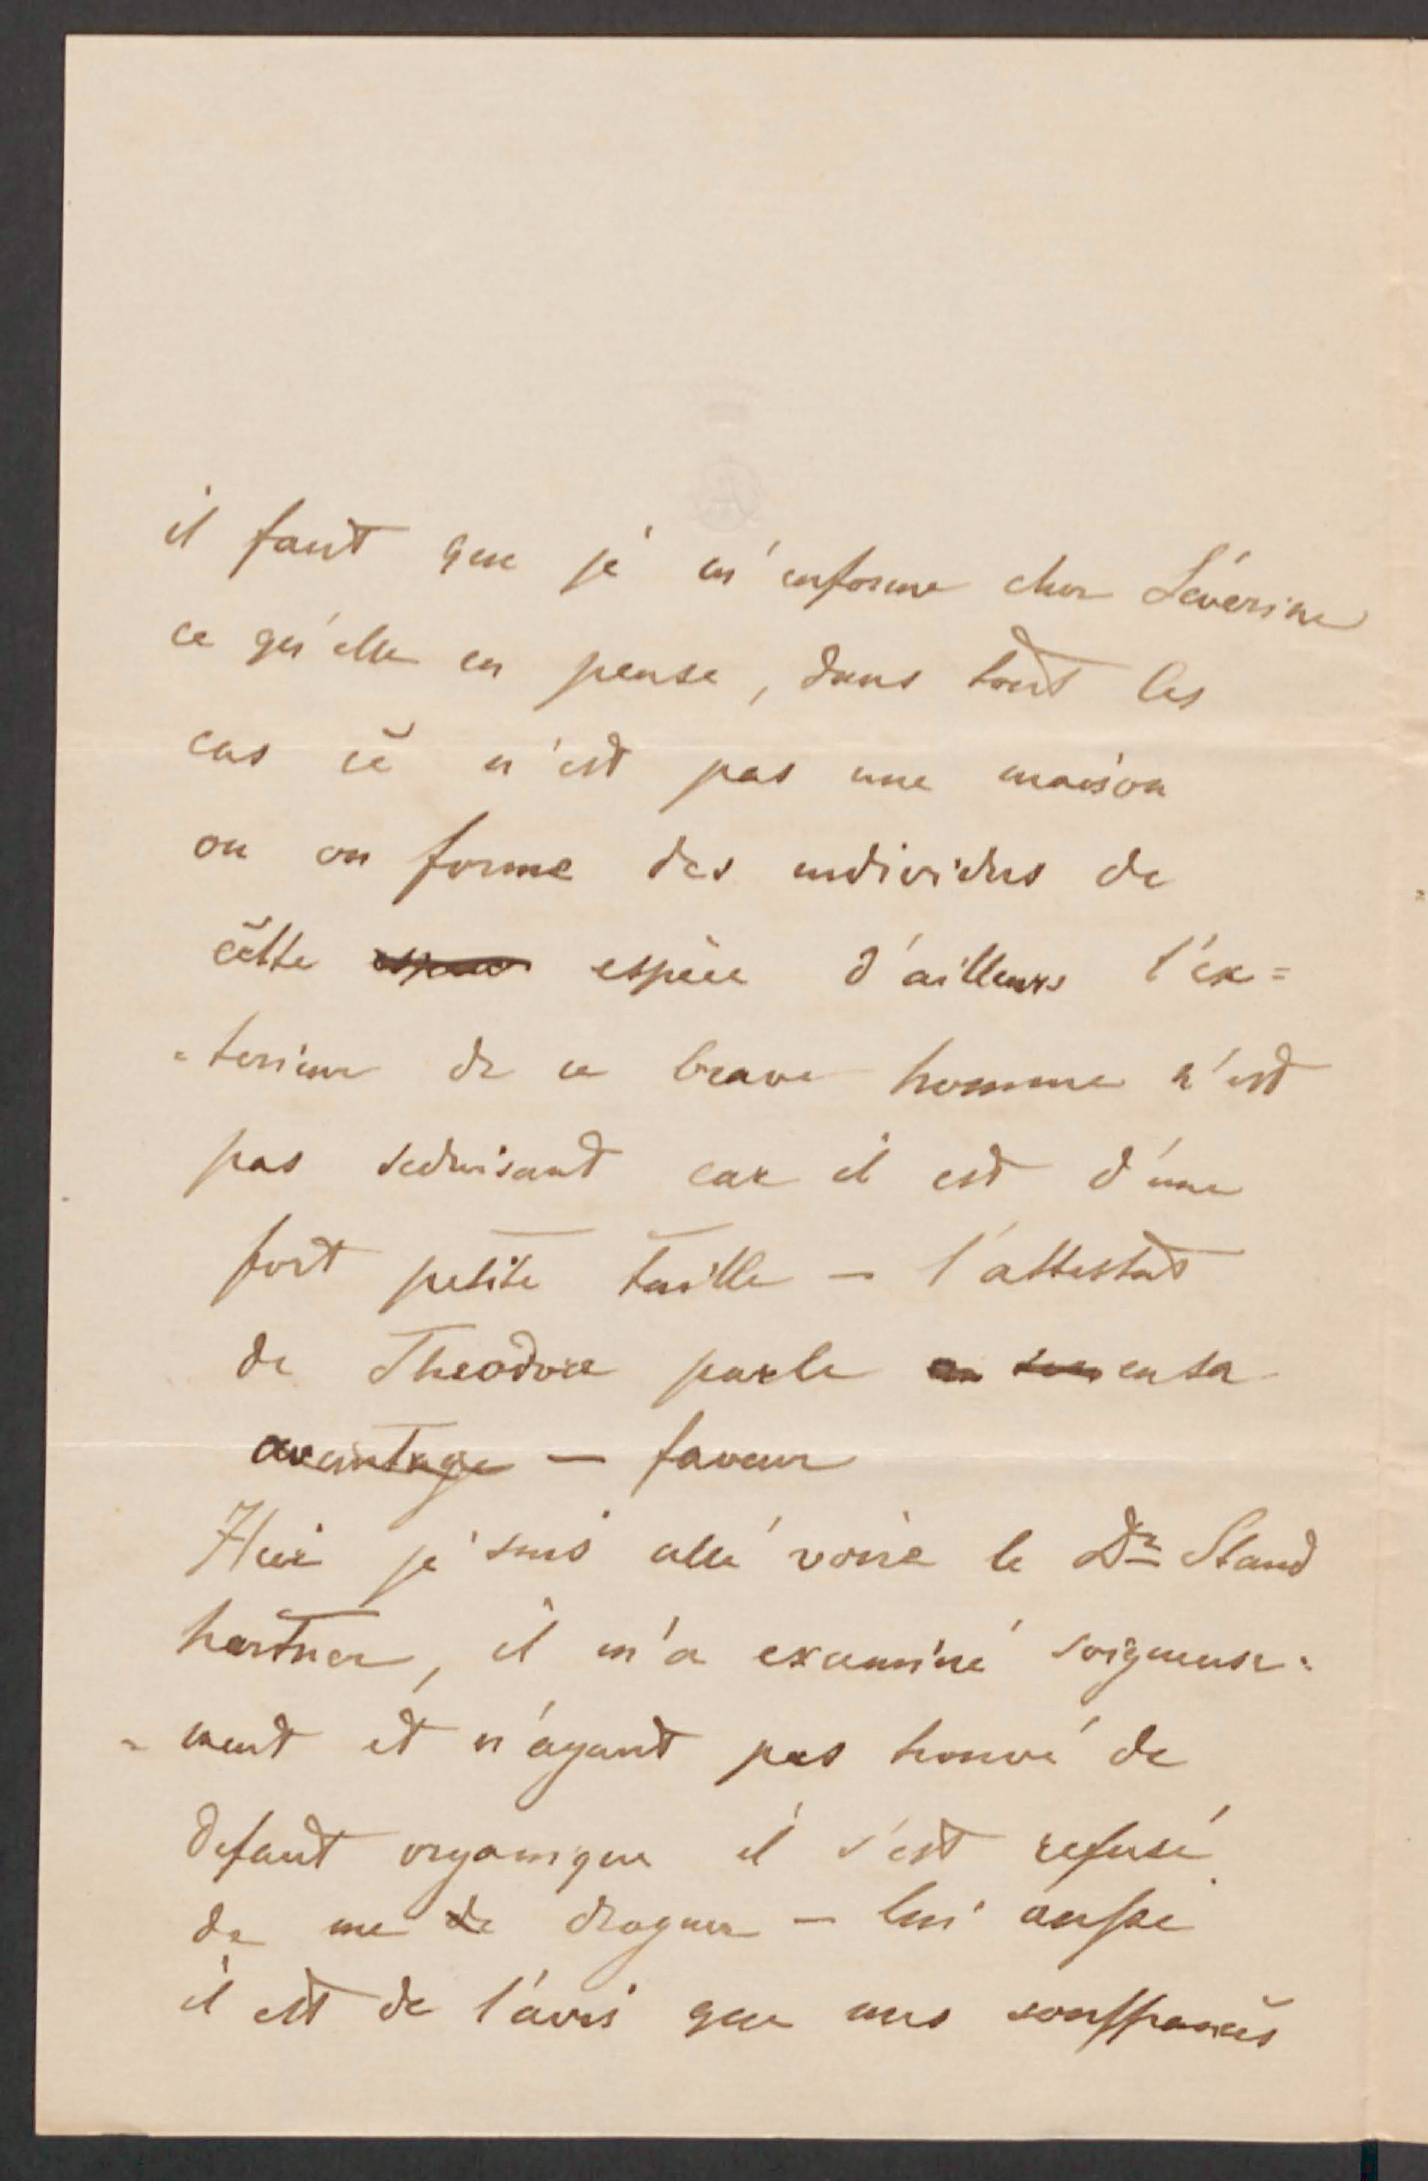 il faut que je m'informe chez Séverine
ce qu'elle en pense, dans tout les
cas ce n'est pas une maison
ou on forme des individus de
cette espèce d'ailleurs l'ex=
=terieur de ce brave homme n'est
pas seduisant car il est d'une
fort petite taille – l'attestat
de Theodore parle en sa
avantage – faveur
Hier je suis allé voire le Dr Stand
hartner, il m'a examiné soigneuse=
=ment et n'ayant pas trouvé de
defaut organique il s'est refusé
de me de droguer – lui aussi
il est de l'avis que mes souffrances